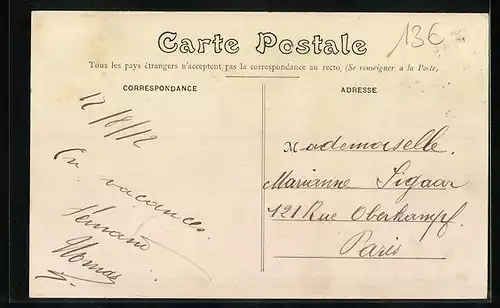 13€
Carte Postale
Tous les pays étrangers n'acceptent pas la correspondance au recto (Se renseigner a la Poste)
CORRESPONDANCE
ADRESSE
12/8/12
En vacances.
Fernand
Thomas
Mademoiselle.
Marianne Sigaar
121 Rue Oberkampf.
Paris